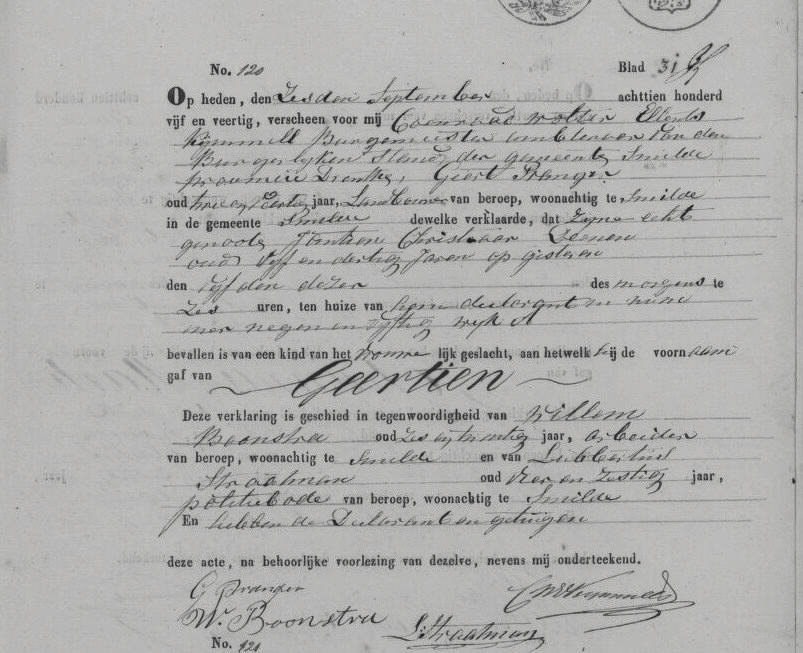 No. 120 Blad 31
Op heden, den Zesden September achttien honderd
vijf en veertig, verscheen voor mij Coenraad Wolter Ellents
Kymmell Burgemeester ambtenaar van den
Burgerlyken Stand der gemeente Smilde
provincie Drenthe, Geert Pranger
oud drie en veertig jaar, Landbouwer van beroep, woonachtig te Smilde
in de gemeente Smilde dewelke verklaarde, dat zyne echt
genoote Jantien Christiaan Deenen
oud vyf en dertig Jaren op gisteren
den vyfden dezer des morgens te
zes uren, ten huize van hem declarant in num
mer negen en vyftig wyk A
bevallen is van een kind van het vrouwe lijk geslacht, aan hetwelk hij de voornaam
gaf van Geertien
Deze verklaring is geschied in tegenwoordigheid van Willem
Boonstra oud zes en twintig jaar, arbeider
van beroep, woonachtig te Smilde en van Lubbertus
Straatman oud vier en zestig jaar,
politiebode van beroep, woonachtig te Smilde
En hebben de Declarant en getuigen
deze acte, na behoorlijke voorlezing van dezelve, nevens mij onderteekend.
G Pranger
W. Boonstra
L: Straatman
No. 121